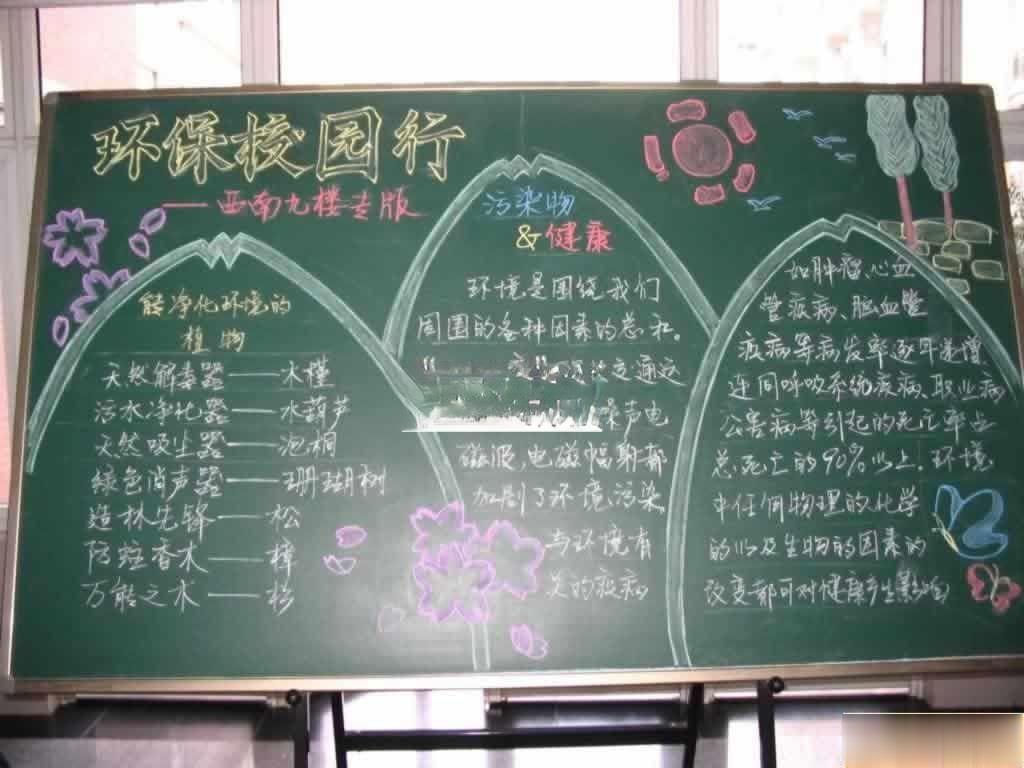 环保校园行
——西南九楼专版
能净化环境的
植物
天然解毒器——木槿
污水净化器——水葫芦
天然吸尘器——泡桐
绿色消声器——珊瑚树
造林先锋——松
防蛀香木——樟
万能之木——杉
污染物
&健康
环境是围绕我们
周围的各种因素的总和。
交通
噪声电
磁波,电磁辐射都
加剧了环境污染
与环境有
关的疾病
如肿瘤、心血
管疾病、脑血管
疾病等病发率逐年递增
连同呼吸系统疾病、职业病
公害病等引起的死亡率占
总死亡的90%以上。环境
中任何物理的化学
的以及生物的因素的
改变都可对健康产生影响